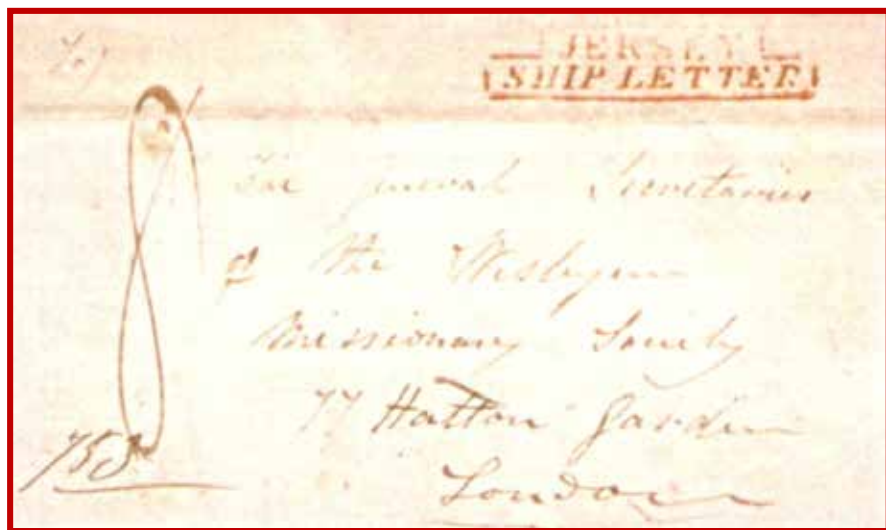 JERSEY
SHIP LETTER
The General Secretaries
of the Wesleyan
Missionary Society
77 Hatton Garden
London
8